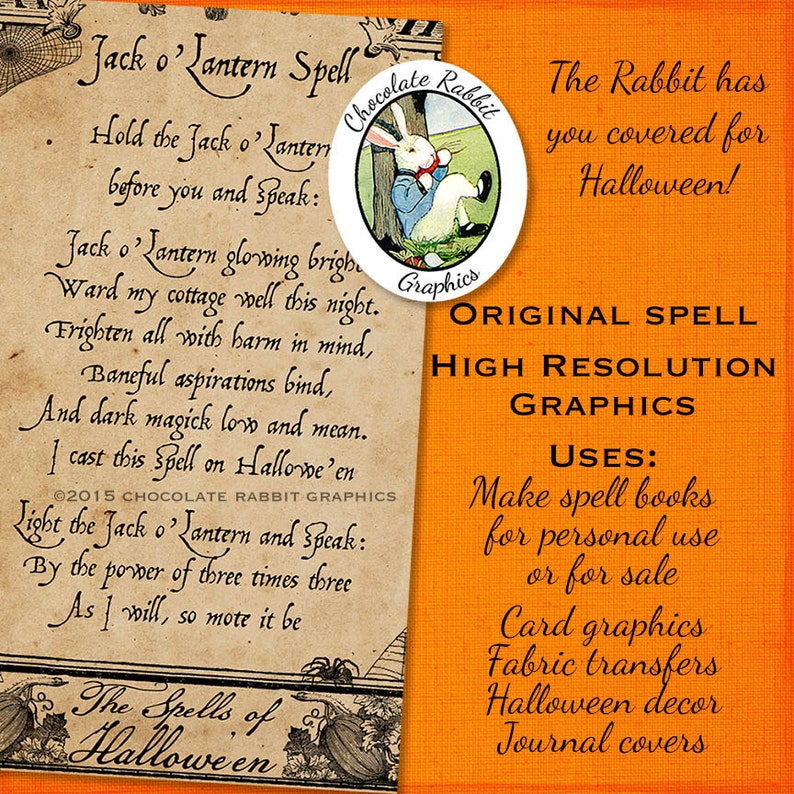 Jack o'Lantern Spell
Hold the Jack o'Lantern
before you and speak:
Jack o'Lantern glowing bright
Ward my cottage well this night.
Frighten all with harm in mind,
Baneful aspirations bind,
And dark magick low and mean.
I cast this spell on Hallowe'en
©2015 CHOCOLATE RABBIT GRAPHICS
Light the Jack o'Lantern and speak:
By the power of three times three
As I will, so mote it be
The Spells of
Hallowe'en
Chocolate Rabbit
Graphics
The Rabbit has
you covered for
Halloween!
ORIGINAL SPELL
HIGH RESOLUTION
GRAPHICS
USES:
Make spell books
for personal use
or for sale
Card graphics
Fabric transfers
Halloween decor
Journal covers